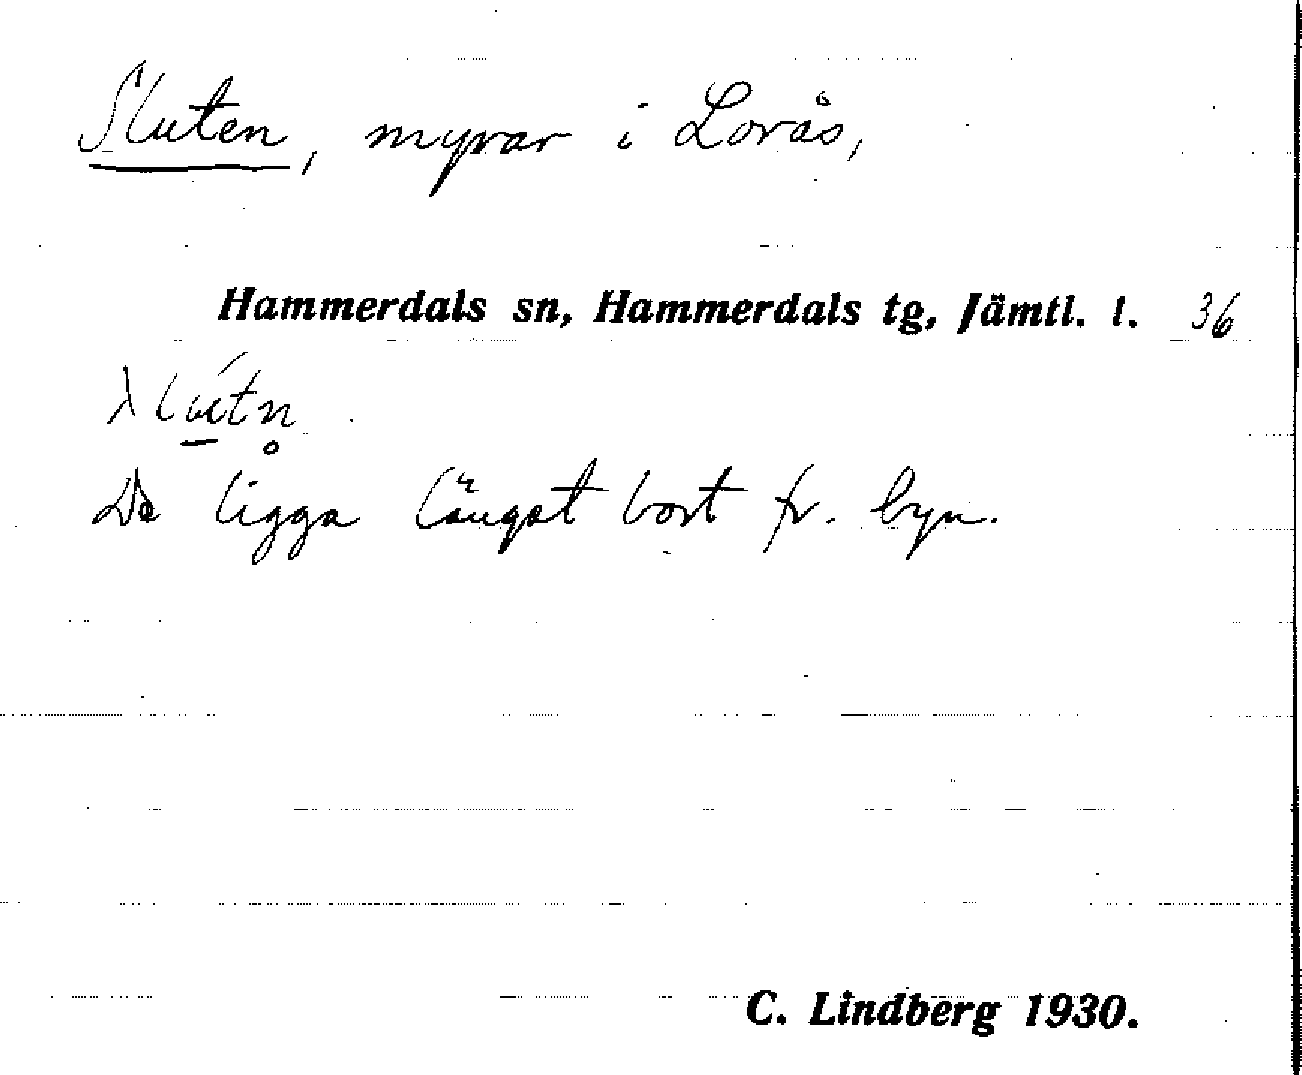 Sluten, myrar i Lorås,
Hammerdals sn, Hammerdals tg, Jämtl. l. 36
De ligga längst bort fr. byn.
C. Lindberg 1930.